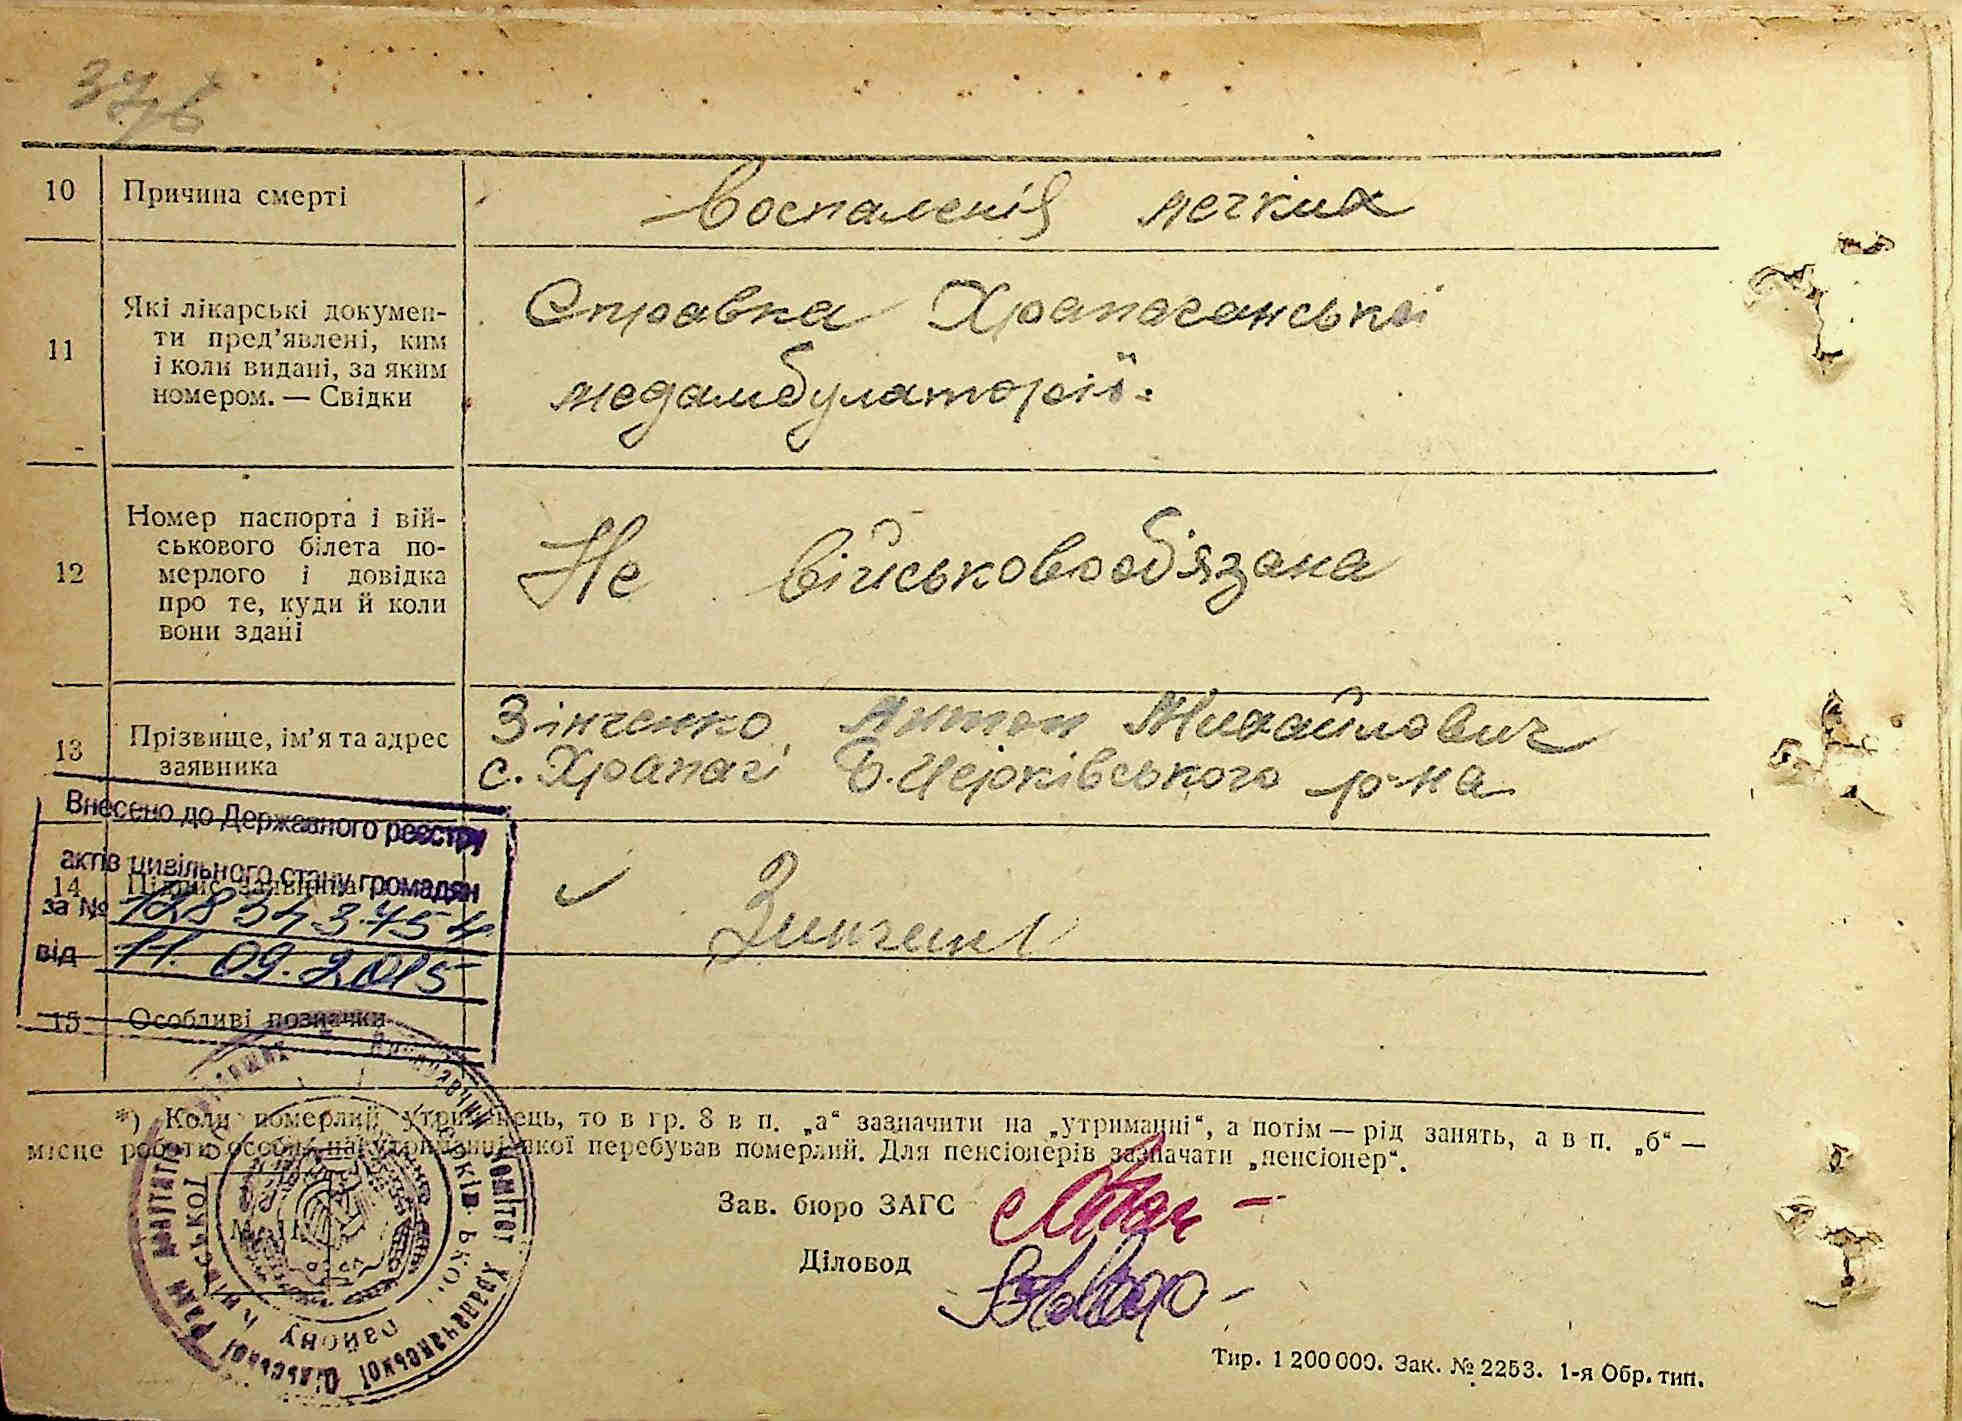 37/б
10 Причина смерті Воспаленія легких
11 Які лікарські докумен-
ти пред’явлені, ким
і коли видані, за яким
номером. — Свідки
Справка Храпачанської
медамбулаторії.
12 Номер паспорта і вій-
ськового білета по-
мерлого і довідка
про те, куди й коли
вони здані
Не військовооб'язана
13 Прізвище, ім’я та адрес
заявника
Зінченко Антон Михайлович
с. Храпачі Б. Церківського р-на
Внесено до Державного реєстру
актів цивільного стану громадян
за № 12834343754
від 11.09.2015
14 Підпис заявника
15 Особливі позначки
*) Коли померлий утриманець, то в гр. 8 в п. „а“ зазначити на „утриманні“, а потім — рід занять, а в п. „б“ —
місце роботи особи, на утриманні якої перебував померлий. Для пенсіонерів зазначати „пенсіонер“.
Зав. бюро ЗАГС
Діловод
Виконавчий комітет Храпачанської сільської Ради депутатів трудящих
району Київської
Тир. 1 200 000. Зак. № 2253. 1-я Обр. тип.